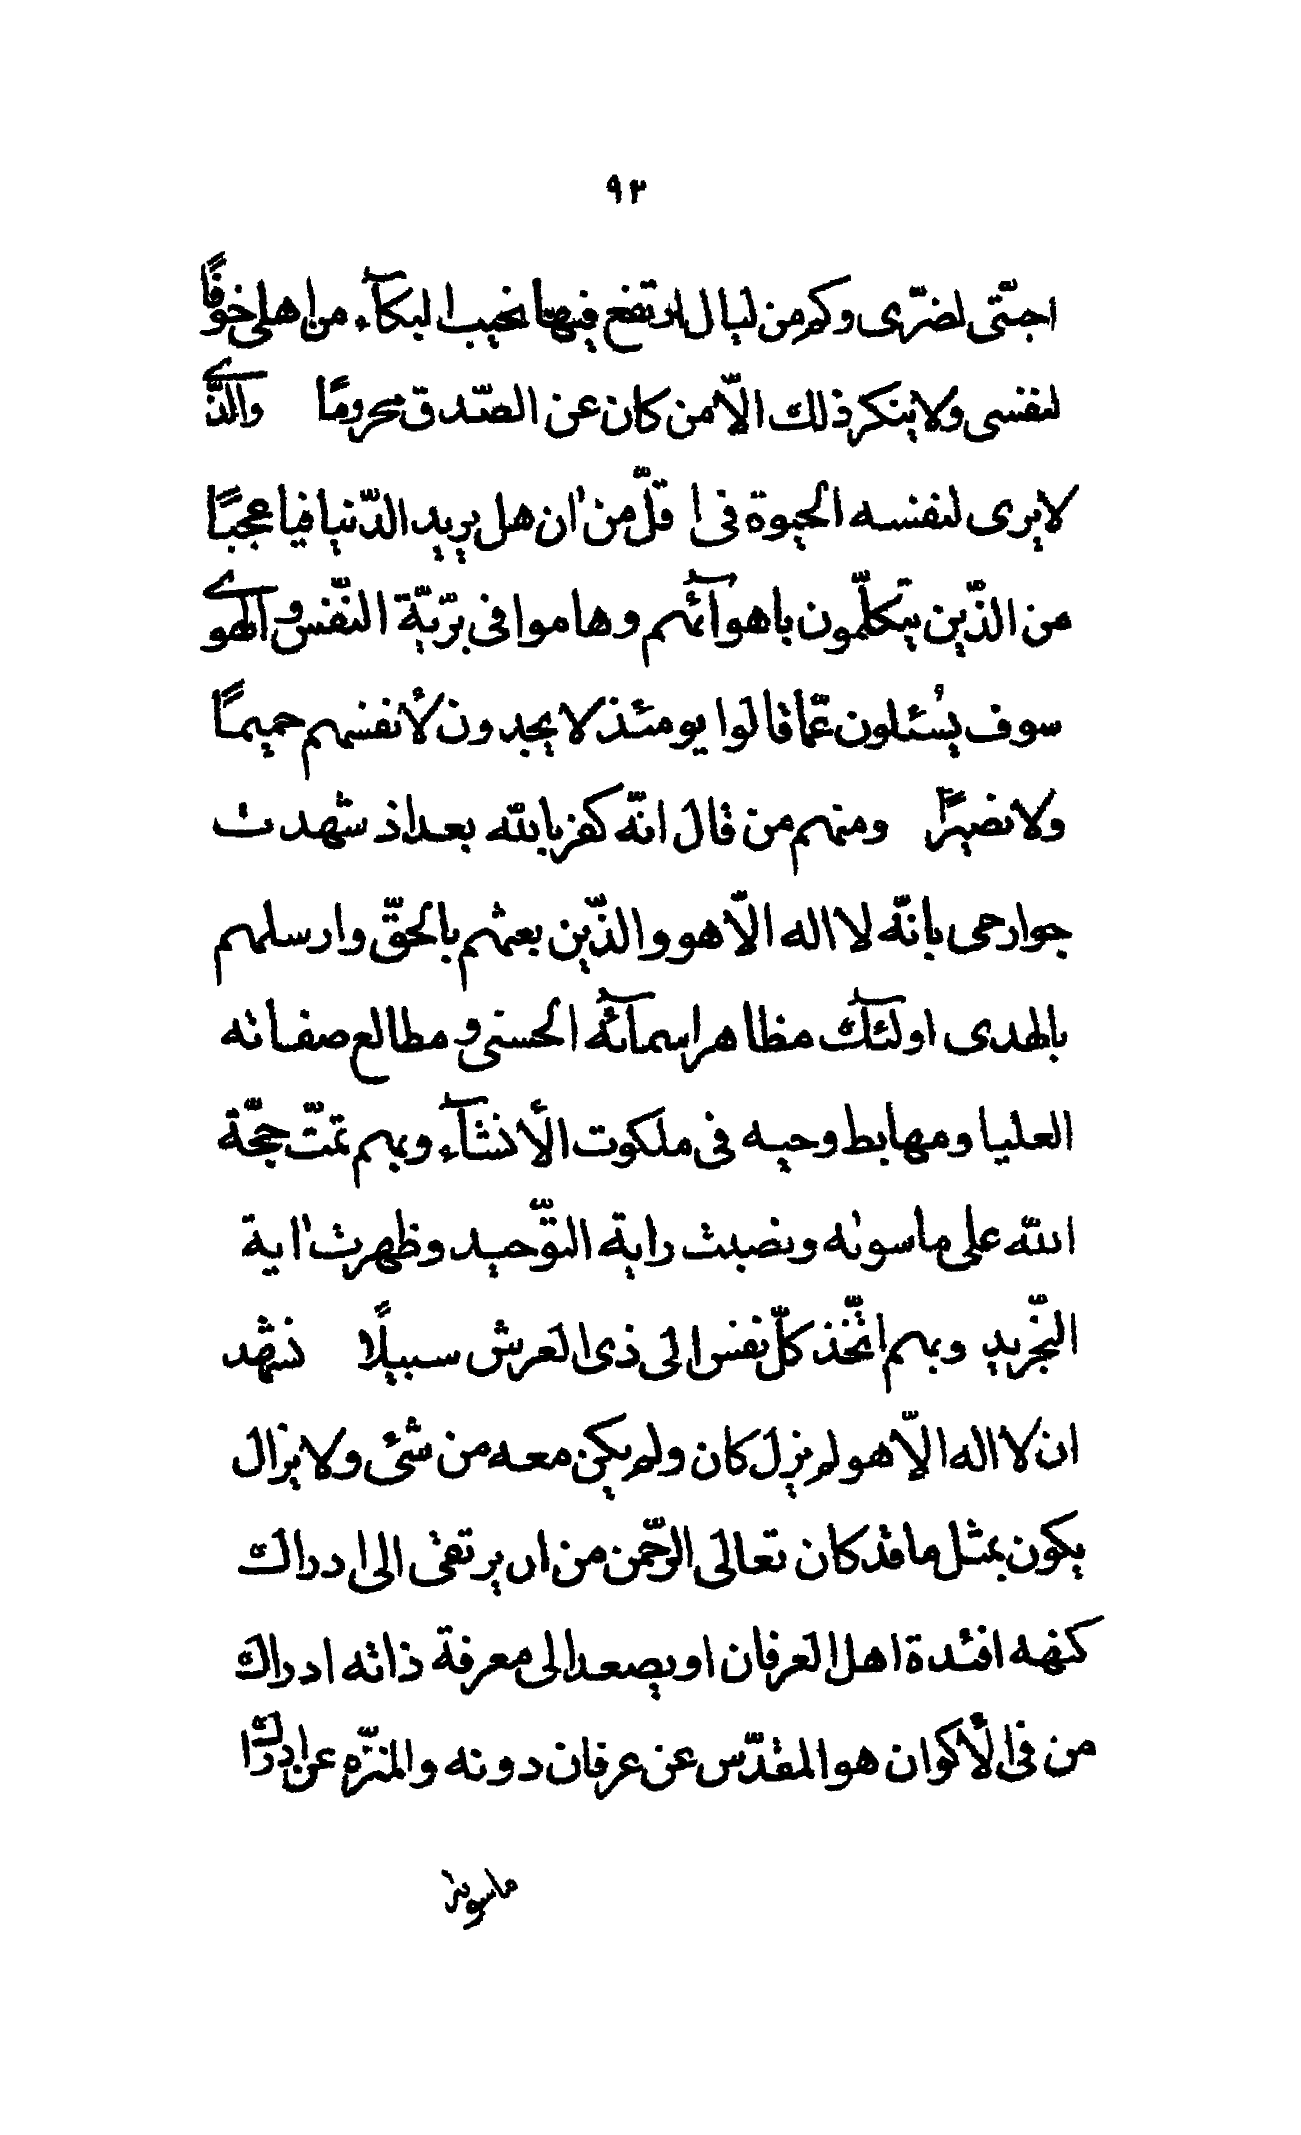 ٩٣
احبّتى لضرّى وكم من ليال ارتفع فيها نحيب البكآء من اهلى خوفًا
لنفسى ولا ينكر ذلك الّا من كان عن الصّدق محرومًا والّذى
لا يرى لنفسه الحيوة فى اقلّ من ان هل يريد الدّنيا فيا عجبًا
من الّذين يتكلّمون باهوآئهم وهاموا فى برّيّة النّفس والهوى
سوف يُسئلون عمّا قالوا يومئذ لا يجدون لأنفسهم حميمًا
ولا نصيرًا ومنهم من قال انّه كفر بالله بعد اذ شهدت
جوارحى بانّه لا اله الّا هو والّذين بعثهم بالحقّ وارسلهم
بالهدى اولئك مظاهر اسمآئه الحسنى و مطالع صفاته
العليا ومهابط وحيه فى ملكوت الأنشآء وبهم تمّت حجّة
الله على ما سوىٰه ونصبت راية التّوحيد وظهرت اٰية
التّجريد وبهم اتّخذ كلّ نفس الى ذى العرش سبيلًا نشهد
ان لا اله الّا هو لم يزل كان ولم يكن معه من شئ ولا يزال
يكون بمثل ما قد كان تعالى الرّحمن من ان يرتقى الى ادراك
كنهه افئدة اهل العرفان او يصعد الى معرفة ذاته ادراك
من فى الأكوان هو المقدّس عن عرفان دونه والمنزّه عن ادراك
ما سوىٰه